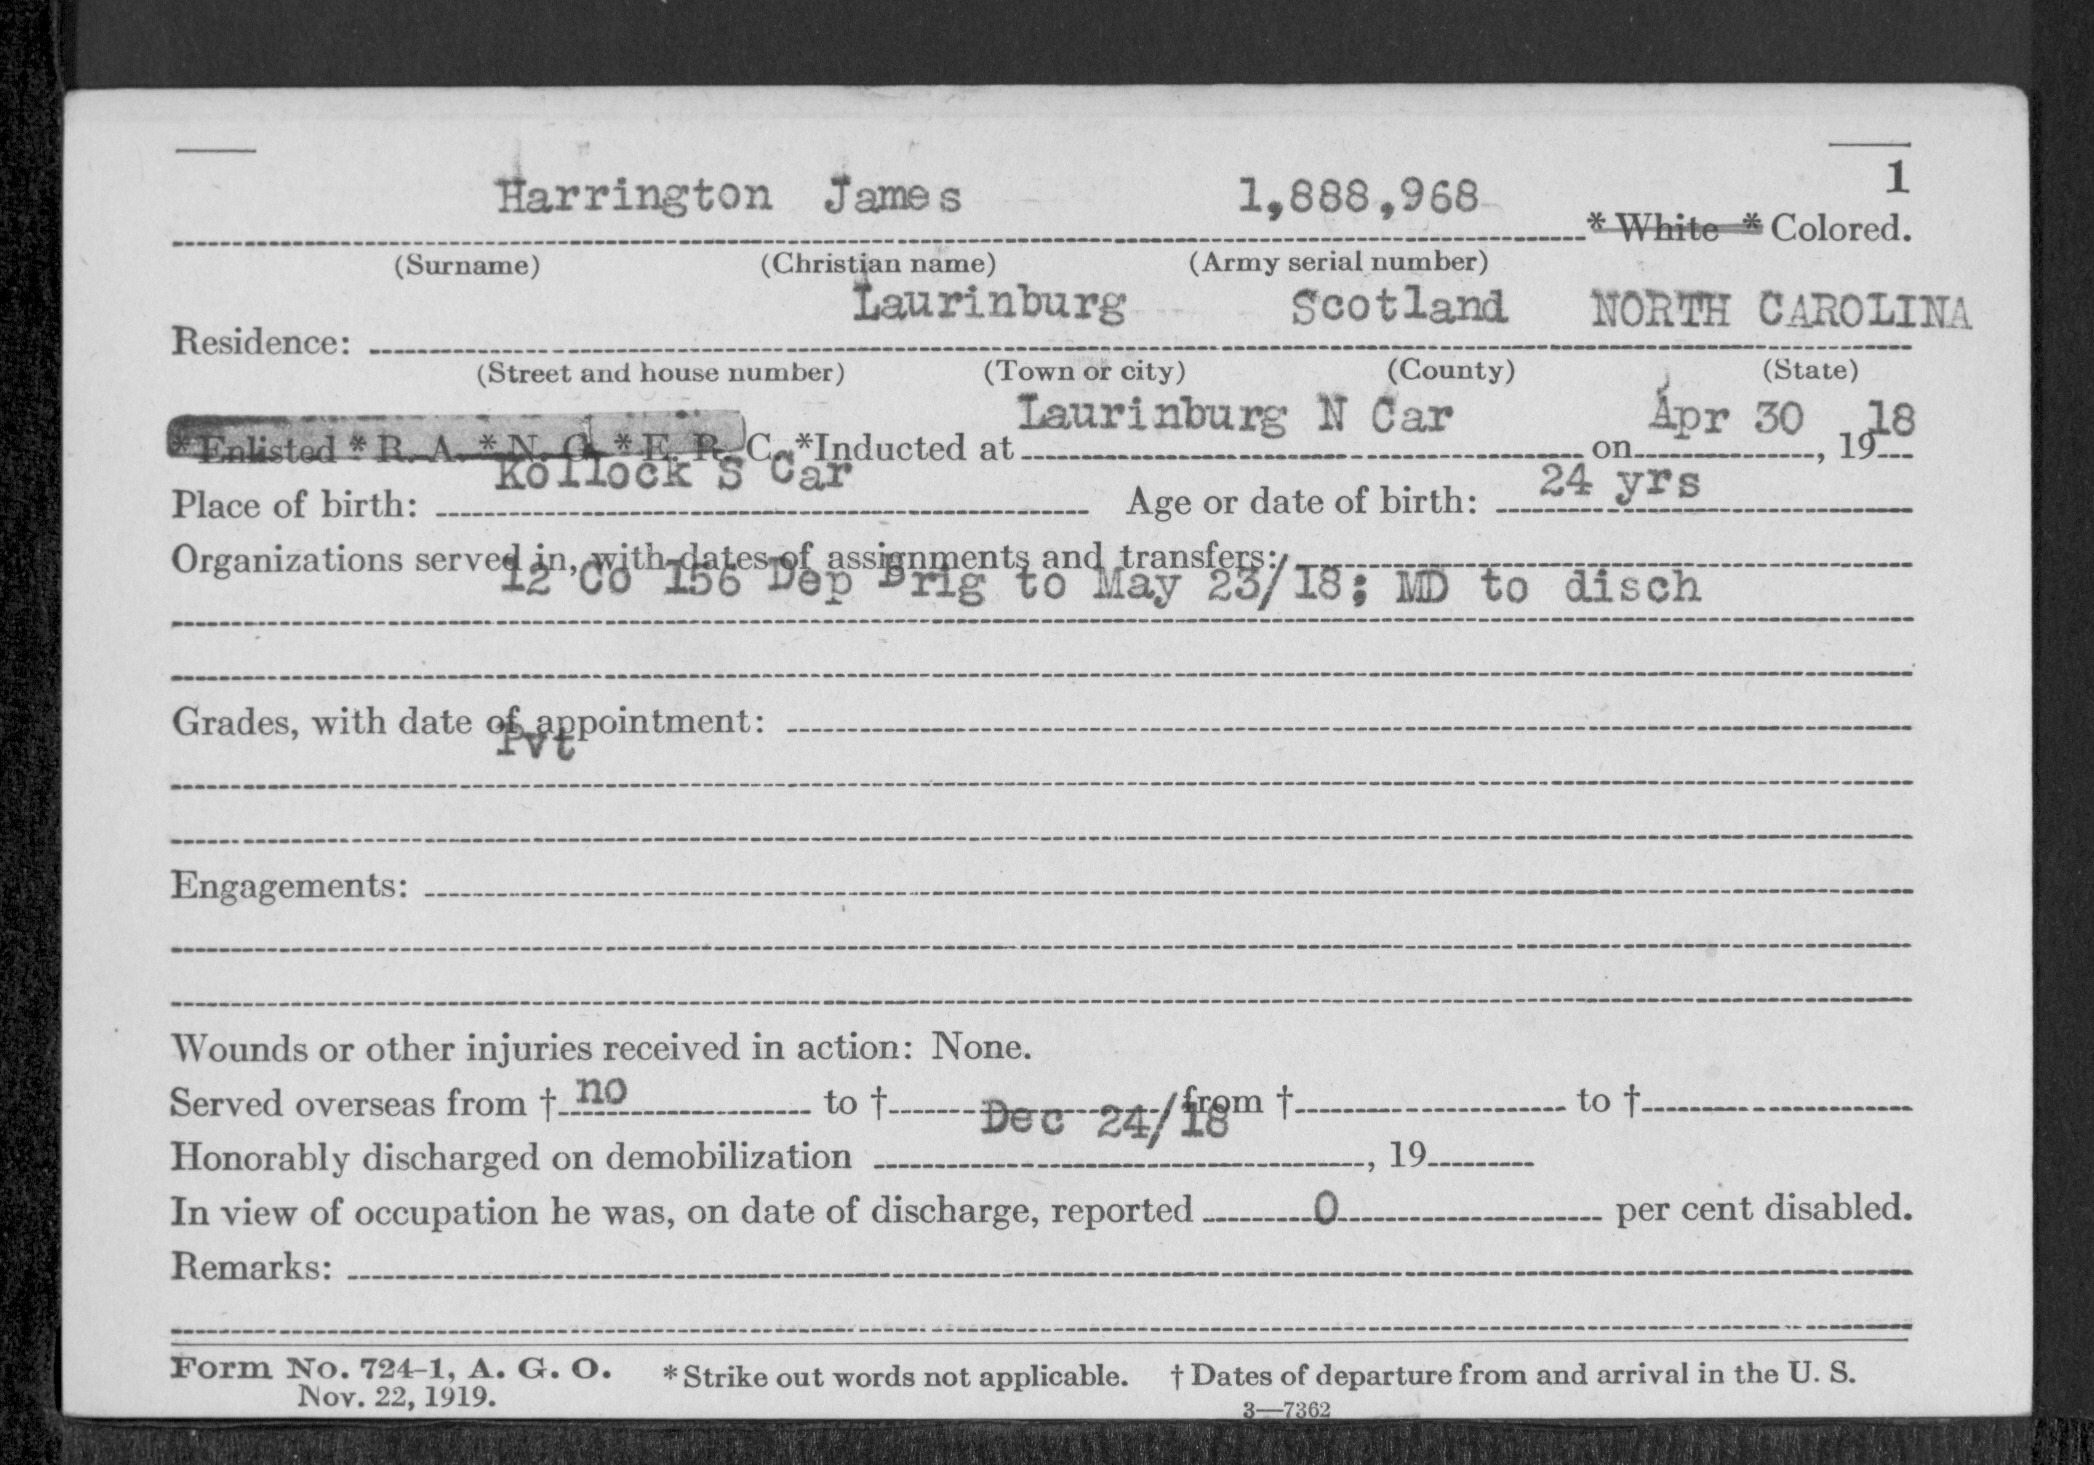 1
Harrington James 1,888,968 * White * Colored.
(Surname) (Christian name) (Army serial number)
Laurinburg Scotland NORTH CAROLINA
Residence:
(Street and house number) (Town or city) (County) (State)
* Enlisted * R. A. * N. G. * E. R. C. *Inducted at Laurinburg N Car on Apr 30, 1918
Place of birth: Kollock S Car Age or date of birth: 24 yrs
Organizations served in, with dates of assignments and transfers:
12 Co 156 Dep Brig to May 23/18; MD to disch
Grades, with date of appointment:
Pvt
Engagements:
Wounds or other injuries received in action: None.
Served overseas from † no to † from † to †
Honorably discharged on demobilization Dec 24/18, 19
In view of occupation he was, on date of discharge, reported 0 per cent disabled.
Remarks:
Form No. 724-1, A. G. O. * Strike out words not applicable. † Dates of departure from and arrival in the U. S.
Nov. 22, 1919.
3—7362